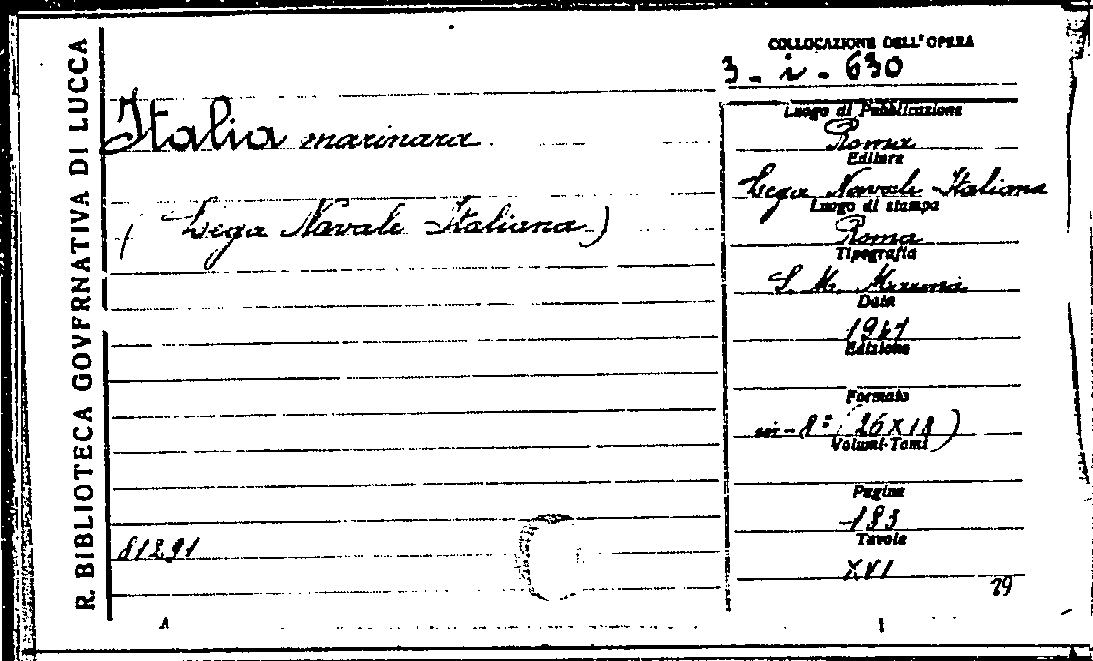 R. BIBLIOTECA GOVERNATIVA DI LUCCA
Italia marinara
( Lega Navale Italiana )
81291
COLLOCAZIONE DELL'OPERA
3 - i - 630
Luogo di Pubblicazione
Roma
Editore
Lega Navale Italiana
Luogo di stampa
Roma
Tipografia
S. M.
Data
1941
Edizione
Formato
in-8° (26x18)
Volumi-Tomi
Pagine
183
Tavole
XVI
29